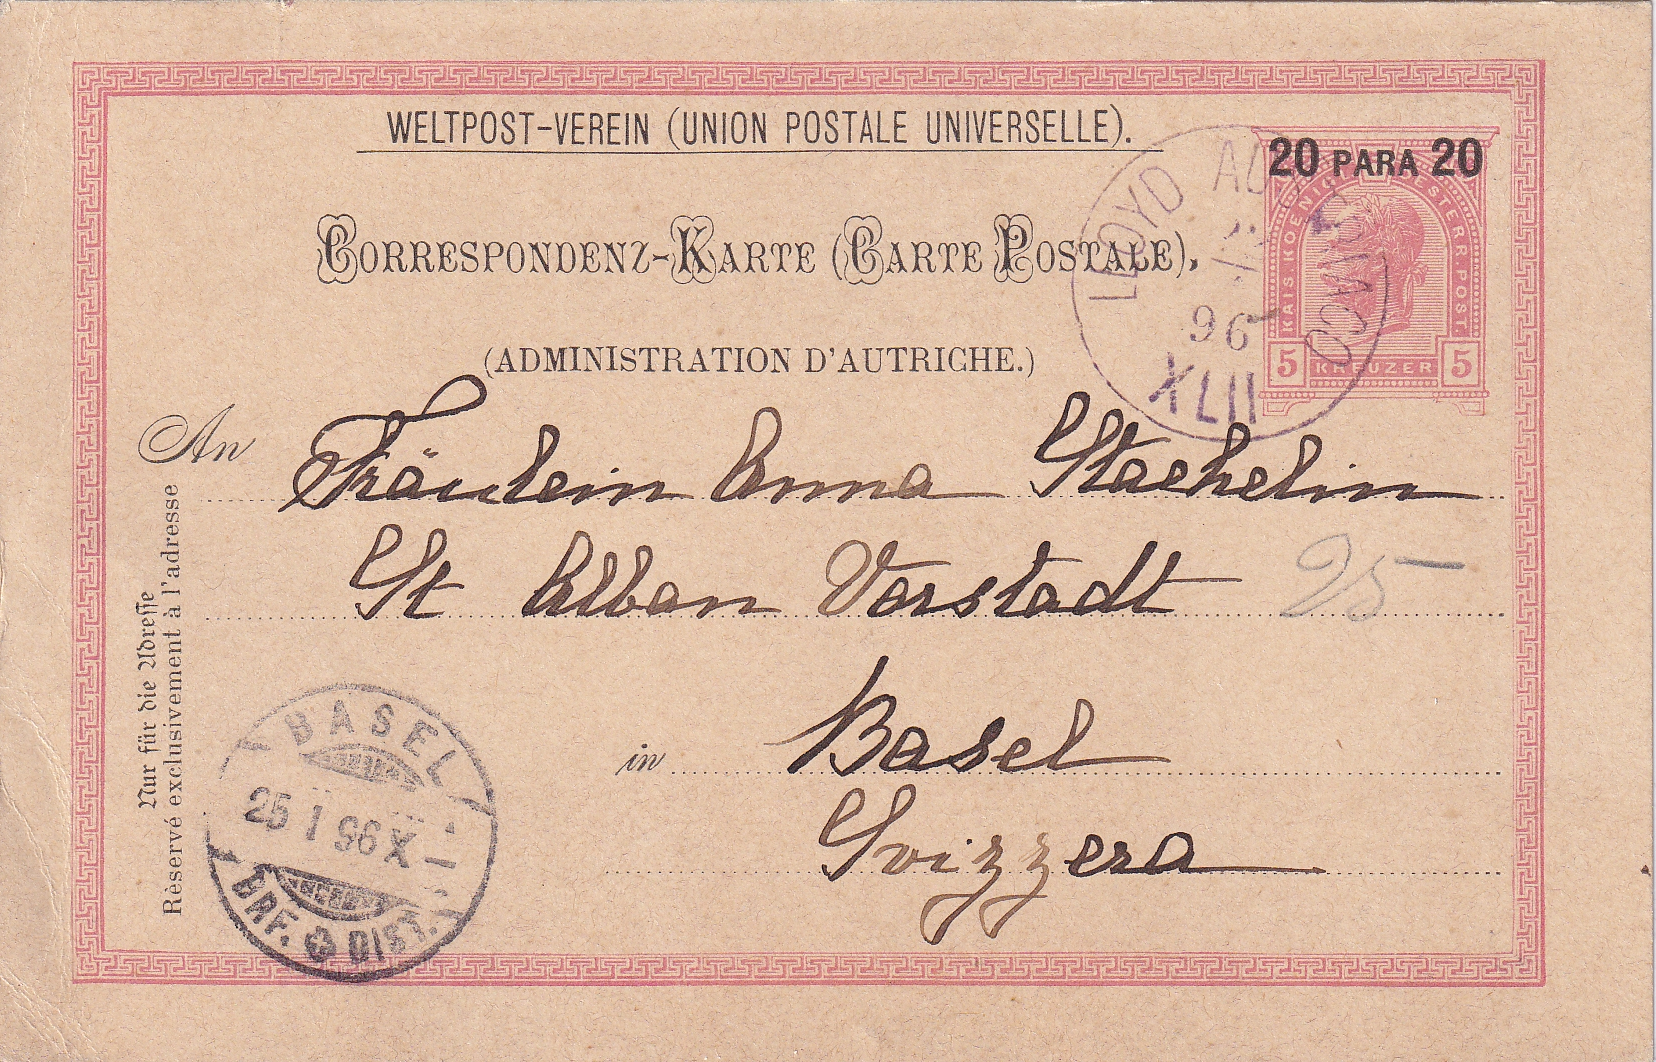 WELTPOST-VEREIN (UNION POSTALE UNIVERSELLE).
20 PARA 20
KAIS. KOENIGL. OESTERR. POST.
5 KREUZER 5
LLOYD AUSTRIACO
96
XLII
CORRESPONDENZ-KARTE (CARTE POSTALE).
(ADMINISTRATION D'AUTRICHE.)
An Fräulein Anna Staehelin
St Alban Vorstadt
25
in Basel
Svizzera
Nur für die Adresse
Réservé exclusivement à l'adresse
BASEL
25 I 96 X –
BRF. DIST.